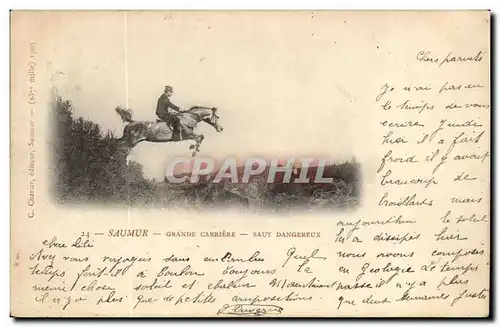 G. Charier, éditeur, Saumur — (13me mille) 1901
CPARAMA
24 — SAUMUR — GRANDE CARRIÈRE — SAUT DANGEREUX
Chers parents
Je n'ai pas eu
le temps de vous
écrire Jeudi
hier il a fait
froid il y avait
beaucoup de
brouillards mais
aujourd'hui le soleil
l'a dissipés hier
nous avons composés
en Géologie de temps
passe il n'y a plus
que deux semaines juste
chère Lili
Avez vous voyagés sans encombre Quel
temps fait-il à toujours la
même chose soleil et chaleur Maintenant
il n'y a plus que de petites compositions.